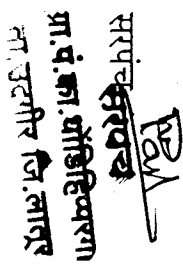 सरपंच
सरपंच
ग्रा.पं.का.धोंडिहिप्परगा
ता.उदगीर जि.लातूर